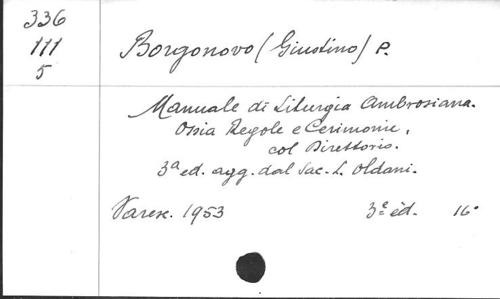 336
111
5
Borgonovo (Giustino) P.
Manuale di Liturgia Ambrosiana.
Ossia Regole e Cerimonie,
col Direttorio.
3ª ed. agg. dal Sac. L. Oldani.
Varese. 1953 3e éd. 16°